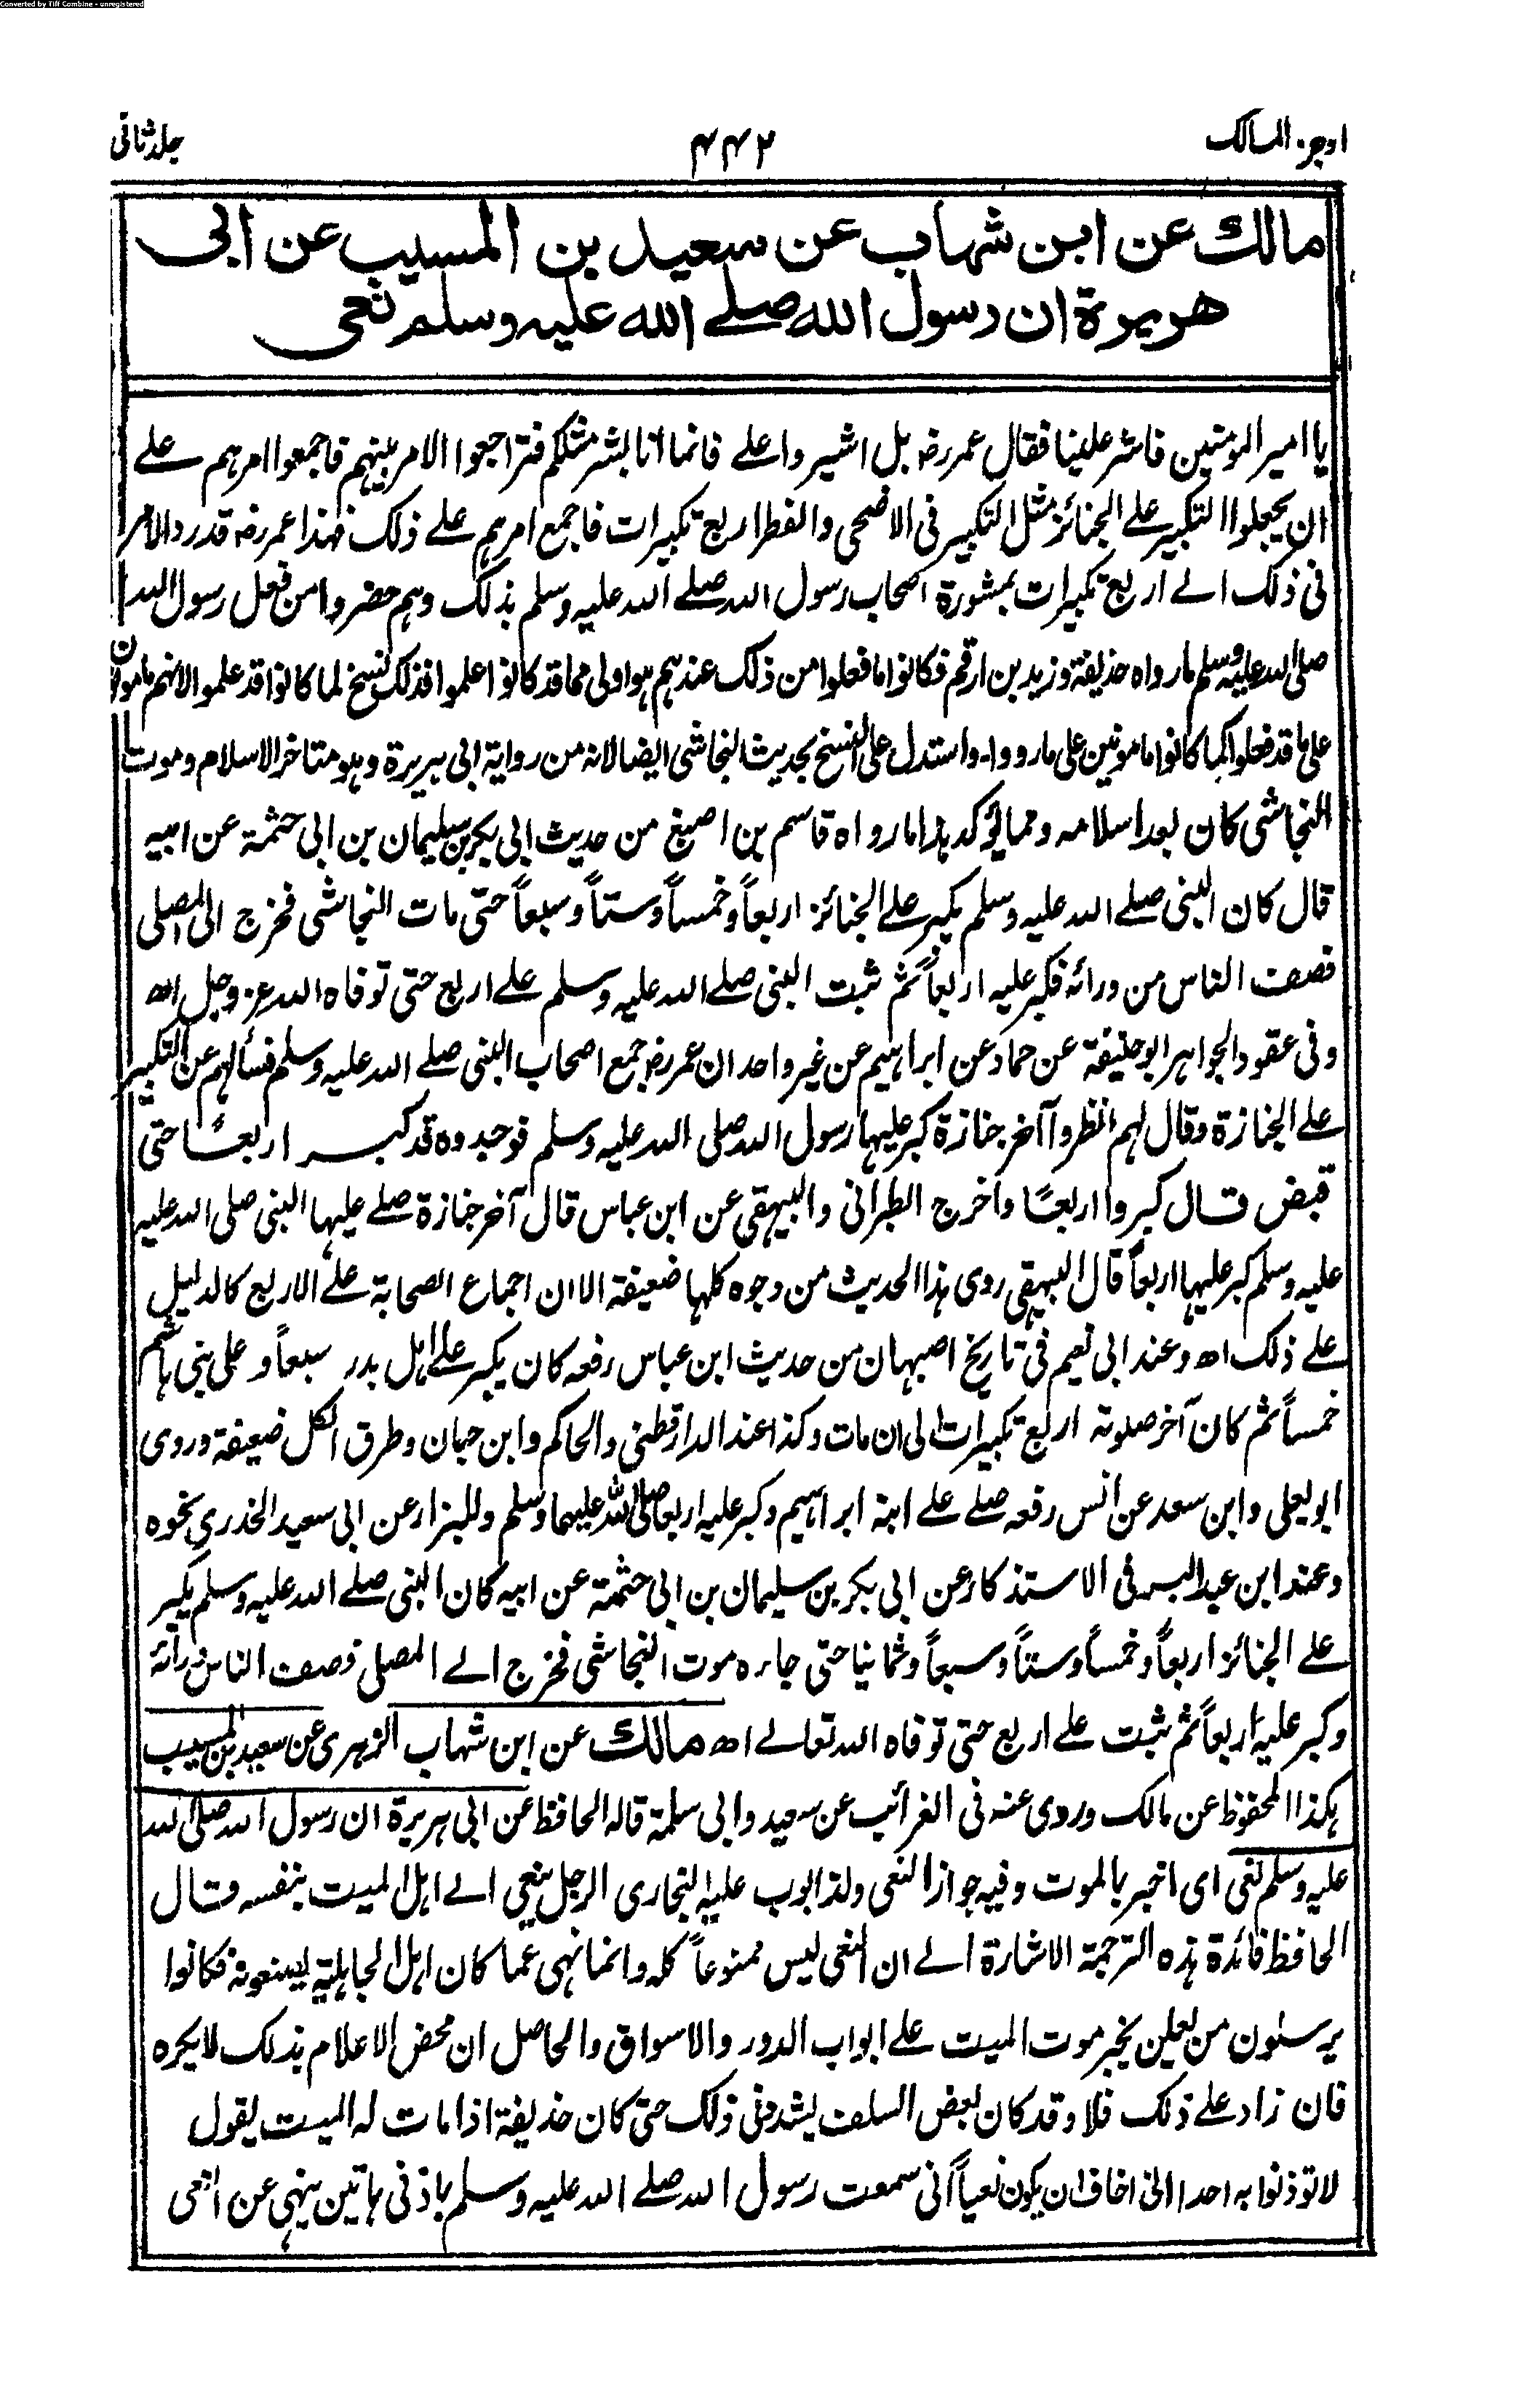 Converted by Tiff Combine - unregistered
اوجز المسالك
٤٤٢
جلد ثانی
مالك عن ابن شهاب عن سعید بن المسیب عن ابی
هریرة ان رسول الله صلے الله علیه وسلم نعی
یا امیر المومنین فاشر علینا فقال عمر رضہ بل اشیروا علے فانما انا بشر مثلکم فتراجعوا الامر بینہم فاجمعوا امرہم علے
ان یجعلوا التکبیر علے الجنائز مثل التکبیر فی الاضحی والفطر اربع تکبیرات فاجمع امرہم علے ذلک فہذا عمر رضہ قد رد الامر
فی ذلک الے اربع تکبیرات بمشورة اصحاب رسول اللہ صلے اللہ علیہ وسلم بذلک وہم حضروا من فعل رسول اللہ
صلی اللہ علیہ وسلم ما رواہ حذیفة وزید بن ارقم فکانوا ما فعلوا من ذلک عندہم ہو اولی مما قد کانوا علموا فذلک نسخ لما کانوا قد علموا لانہم مامونون
علی ما قد فعلوا کما کانوا مامونین علی ما رووا۔ واستدل علی النسخ بحدیث النجاشی ایضا لانہ من روایة ابی ہریرة وہو متاخر الاسلام وموت
النجاشی کان بعد اسلامہ ومما یؤکد ہذا ما رواہ قاسم بن اصبغ من حدیث ابی بکر بن سلیمان بن ابی حثمة عن ابیہ
قال کان النبی صلے اللہ علیہ وسلم یکبر علے الجنائز اربعاً وخمساً وستاً وسبعاً حتی مات النجاشی فخرج الی المصلی
فصف الناس من ورائہ فکبر علیہ اربعاً ثم ثبت النبی صلے اللہ علیہ وسلم علے اربع حتی توفاہ اللہ عز وجل اھ
وفی عقود الجواہر ابو حنیفة عن حماد عن ابراہیم عن غیر واحد ان عمر رضہ جمع اصحاب النبی صلے اللہ علیہ وسلم فسألہم عن التکبیر
علے الجنازة وقال لہم انظروا آخر جنازة کبر علیہا رسول اللہ صلی اللہ علیہ وسلم فوجدوہ قد کبر اربعًا حتی
قبض قال کبروا اربعًا واخرج الطبرانی والبیہقی عن ابن عباس قال آخر جنازة صلے علیہا النبی صلی اللہ علیہ
علیہ وسلم کبر علیہا اربعاً قال البیہقی روی ہذا الحدیث من وجوہ کلہا ضعیفة الا ان اجماع الصحابة علے الاربع کالدلیل
علے ذلک اھ وعند ابی نعیم فی تاریخ اصبہان من حدیث ابن عباس رفعہ کان یکبر علے اہل بدر سبعاً وعلی بنی ہاشم
خمساً ثم کان آخر صلوتہ اربع تکبیرات الی ان مات وکذا عند الدارقطنی والحاکم وابن حبان وطرق الکل ضعیفة وروی
ابو یعلی وابن سعد عن انس رفعہ صلے علے ابنہ ابراہیم وکبر علیہ اربعا صلی اللہ علیہما وسلم وللبزار عن ابی سعید الخدری نحوہ
وعند ابن عبد البر فی الاستذکار عن ابی بکر بن سلیمان بن ابی حثمة عن ابیہ کان النبی صلے اللہ علیہ وسلم یکبر
علے الجنائز اربعاً وخمساً وستاً وسبعاً وثمانیا حتی جاءہ موت النجاشی فخرج الے المصلی فصف الناس وراءہ
وکبر علیہ اربعاً ثم ثبت علے اربع حتی توفاہ اللہ تعالے اھ مالك عن ابن شهاب الزہری عن سعید بن المسیب
ہکذا المحفوظ عن مالک وروی عنہ فی الغرائب عن سعید وابی سلمة قالہ الحافظ عن ابی ہریرة ان رسول اللہ صلی اللہ
علیہ وسلم نعی ای اخبر بالموت وفیہ جواز النعی ولذا بوب علیہ البخاری الرجل ینعی الے اہل المیت بنفسہ وقال
الحافظ فائدة ہذہ الترجمة الاشارة الے ان النعی لیس ممنوعاً کلہ وانما نہی عما کان اہل الجاہلیة یصنعونہ فکانوا
یرسلون من یعلن بخبر موت المیت علے ابواب الدور والاسواق والحاصل ان محض الاعلام بذلک لا یکرہ
فان زاد علے ذلک فلا وقد کان بعض السلف یشدد فی ذلک حتی کان حذیفة اذا مات لہ المیت یقول
لا توذنوا بہ احدا انی اخاف ان یکون نعیاً انی سمعت رسول اللہ صلے اللہ علیہ وسلم باذنی ہاتین ینہی عن النعی